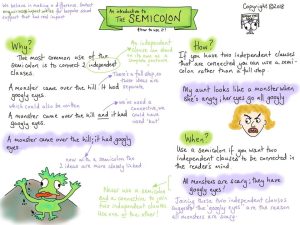 We believe in making a difference. Perfect
support that has impact.
An introduction to
THE SEMICOLON
(How to use it)
Copyright ©2018
Why?
The most common use of the
semicolon is to connect 2 independent
clauses.
A monster came over the hill. It had
googly eyes.
which could also be written
A monster came over the hill and it had
googly eyes.
A monster came over the hill; it had googly
eyes.
now with a semicolon the
ideas are more closely linked
An independent
clause is able
to work on its
own as a
sentence
There is a full stop, so
ideas are
separate.
we used a
connective, we could
have used 'but'
Never use a semicolon
and a connective to join
two independent clauses
use one or the other!
How?
If you have two independent clauses
that are connected you can use a semi-
colon rather than a full stop
My aunt looks like a monster when
she's angry; her eyes go all googly
When?
Use a semicolon if you want two
independent clauses to be connected in
the reader's mind.
All monsters are scary; they have
googly eyes!
Joining these two independent clauses
suggests the "googly eyes" are the reason
all monsters are scary